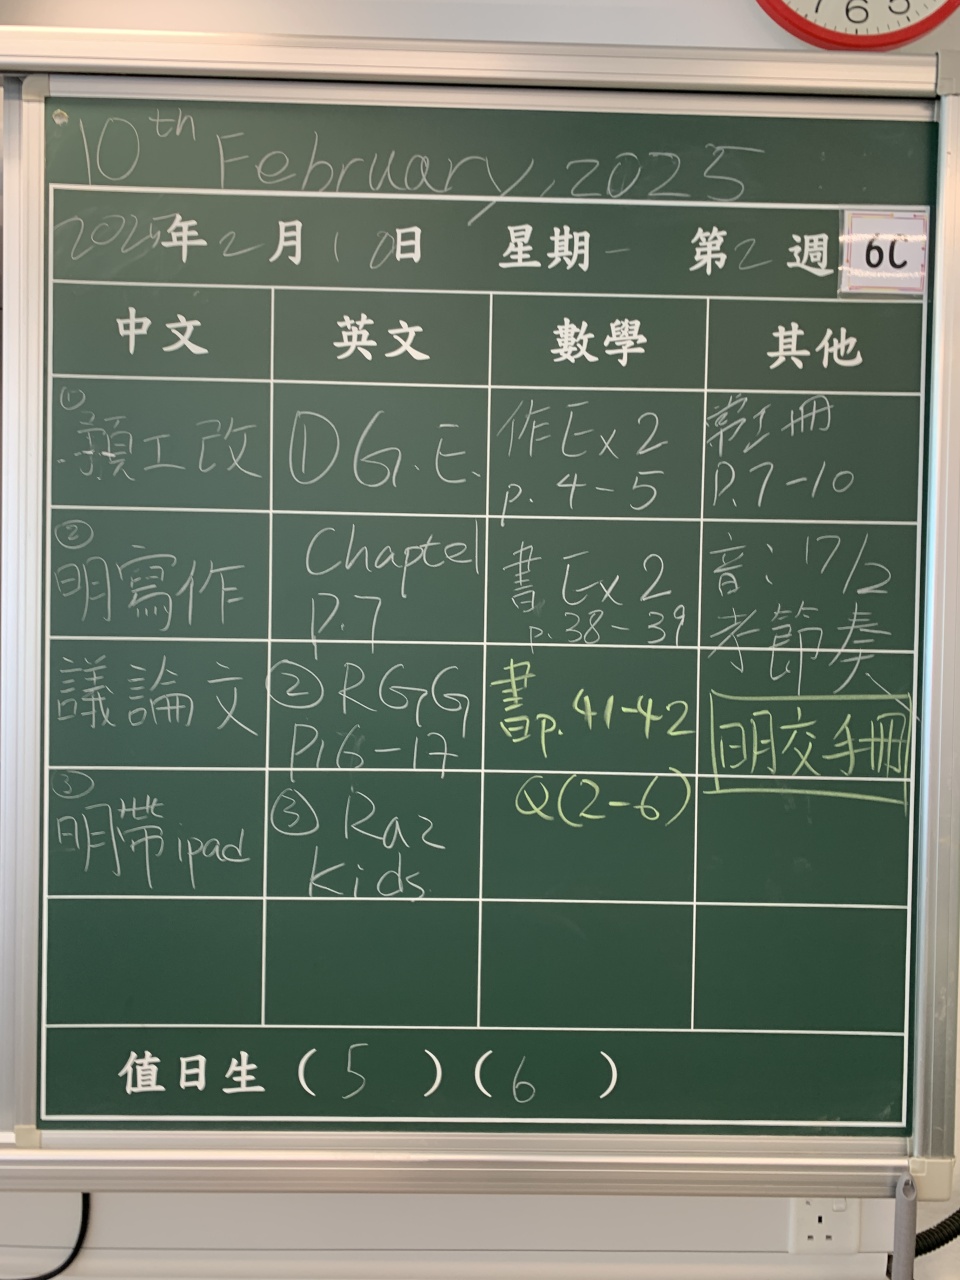 7 6 5
10th February, 2025
2025年2月10日 星期一 第2週 6C
中文 英文 數學 其他
① 預工改
② 明寫作
議論文
③ 明帶ipad
① G.E.
Chapter
P.7
② RGG
P.16-17
③ Raz
Kids
作Ex 2
p. 4-5
書 Ex 2
p. 38-39
書p. 41-42
Q(2-6)
常工冊
P.7-10
音: 17/2
考節奏
明交手冊
值日生 ( 5 ) ( 6 )